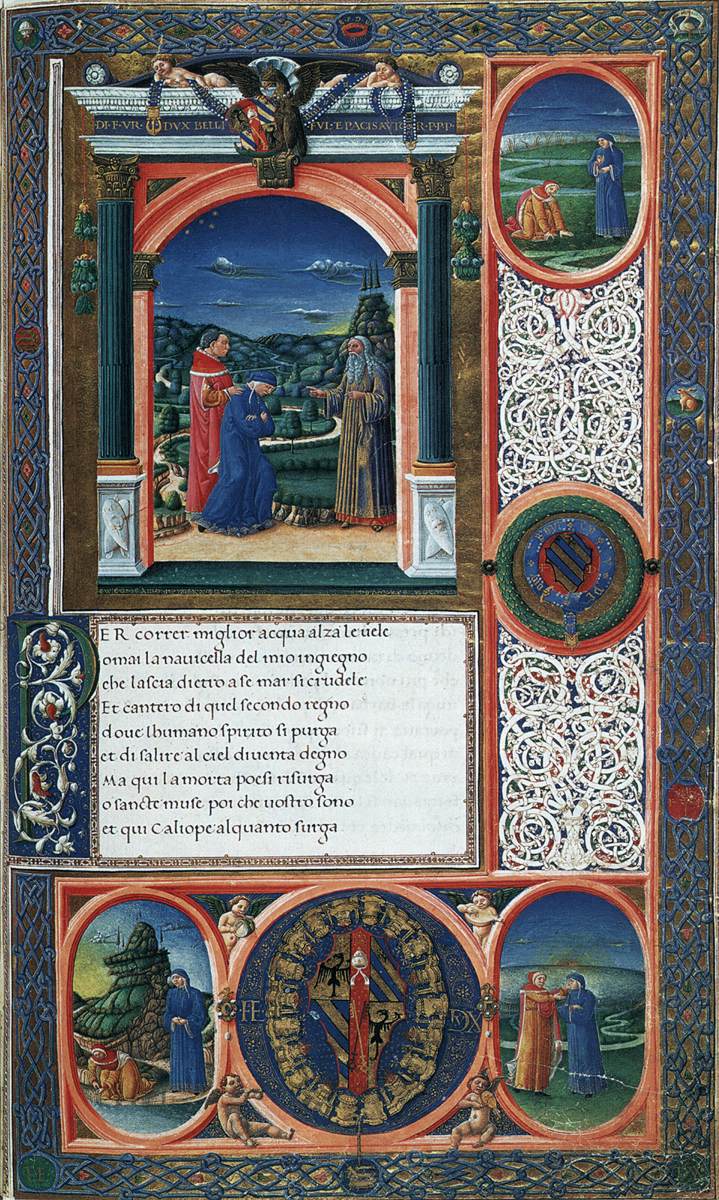 DI·F·VR· DVX BELLI FVL·E PACIS AVTOR·PPP
PER correr miglior acqua alza le uele
omai la nauicella del mio ingiegno
che lascia dietro a se mar si crudele
Et cantero di quel secondo regno
doue lhumano spirito si purga
et di salire al ciel diuenta degno
Ma qui la morta poesi risurga
o sancte muse poi che uostro sono
et qui Caliope alquanto surga
FE DVX